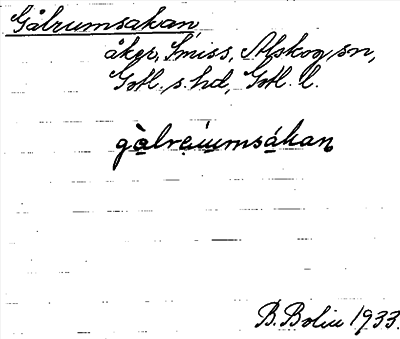 Gålrumsakan
åker, Smiss, Alskog sn,
Gotl. s. hd, Gotl. l.
gàlreiumsákan
B. Bolin 1933.